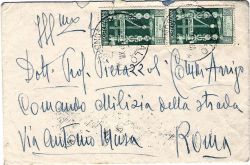 Ill.mo
Dott. Prof. Arrigo
Comando Milizia della strada
Via Antonio Musa Roma